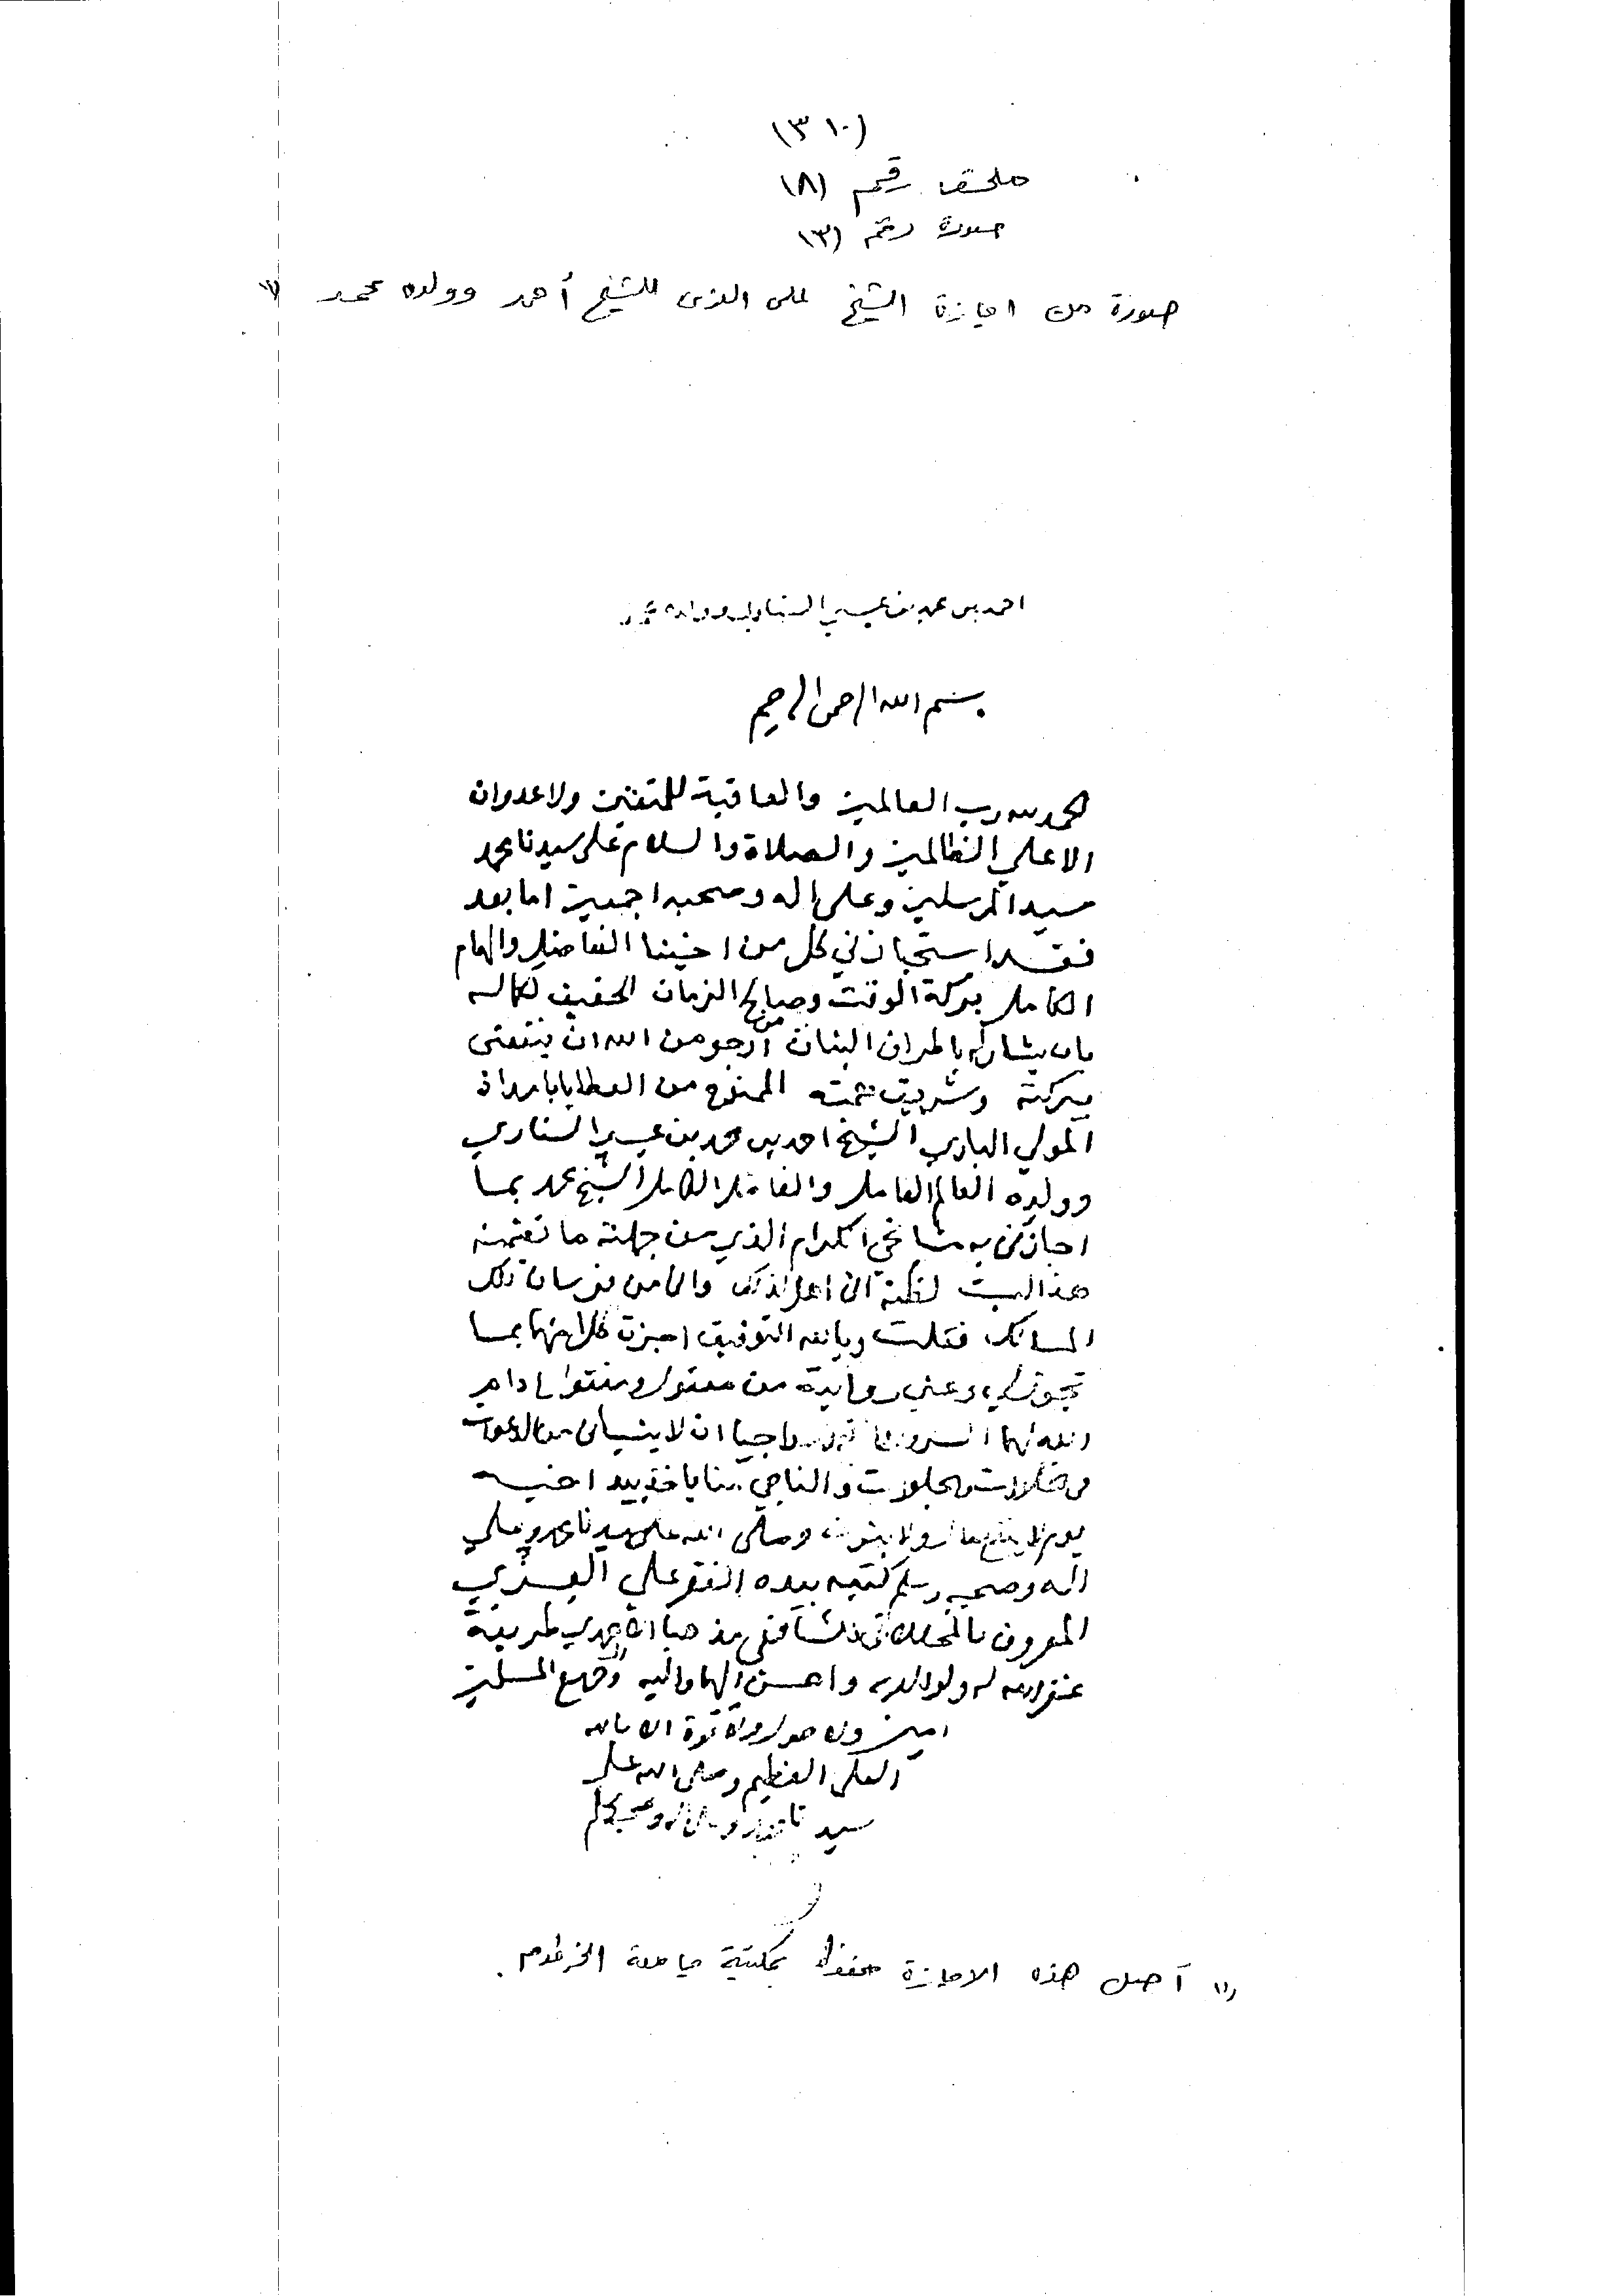 (٣١٠)
ملحق رقم (٨)
صورة رقم (٣)
صورة من اجازة الشيخ على العزى للشيخ أحمد وولده محمد (١)
احمد بن محمد بن عيسي السناري وولده محمد
بسم الله الرحمن الرحيم
الحمد لله رب العالمين والعاقبة للمتقين ولا عدوان
الا علي الظالمين والصلاة والسلام على سيدنا محمد
سيد المرسلين وعلى اله وصحبه اجمعين اما بعد
فقد استجازني كل من اخينا الفاضل والهمام
الكامل بركة الوقت وصالح الزمان الحقيق لكماله
بان يشار له باطراف البنان من ارجو من الله ان ينفعنى
ببركته وشريف همته الممنوح من العطايا بامداد
المولي الباري الشيخ احمد بن محمد بن عيسي السناري
وولده العالم العامل والفاضل الكامل الشيخ محمد بما
اجازنى به مشايخي الكرام الذي من جملته ما تضمنه
هذا الثبت لظنه انى اهل لذلك وانى من فرسان تلك
المسالك فقلت وبالله التوفيق اجزت كلا منهما بما
تجوز لي وعني روايته من معقول ومنقول ادام
الله لهما السرور راجيا ان لا ينسيانى من الدعوات
فى الخلوات والجلوات والناجي منا ياخذ بيد اخيه
يوم لا ينفع مال ولا بنون وصلى الله على سيدنا محمد وعلي
اله وصحبه وسلم كتبه بيده الفقير علي العزي
المعروف بالشافعى مذهبا الاحمدي طريقة
غفر الله له ولوالديه واحسن اليهما واليه والجميع المسلمين
امين ولا حول ولا قوة الا بالله
العلى العظيم وصلى الله على
سيدنا محمد وعلى اله وصحبه وسلم
(١) أصل هذه الاجازة محفوظ بمكتبة جامعة الخرطوم.